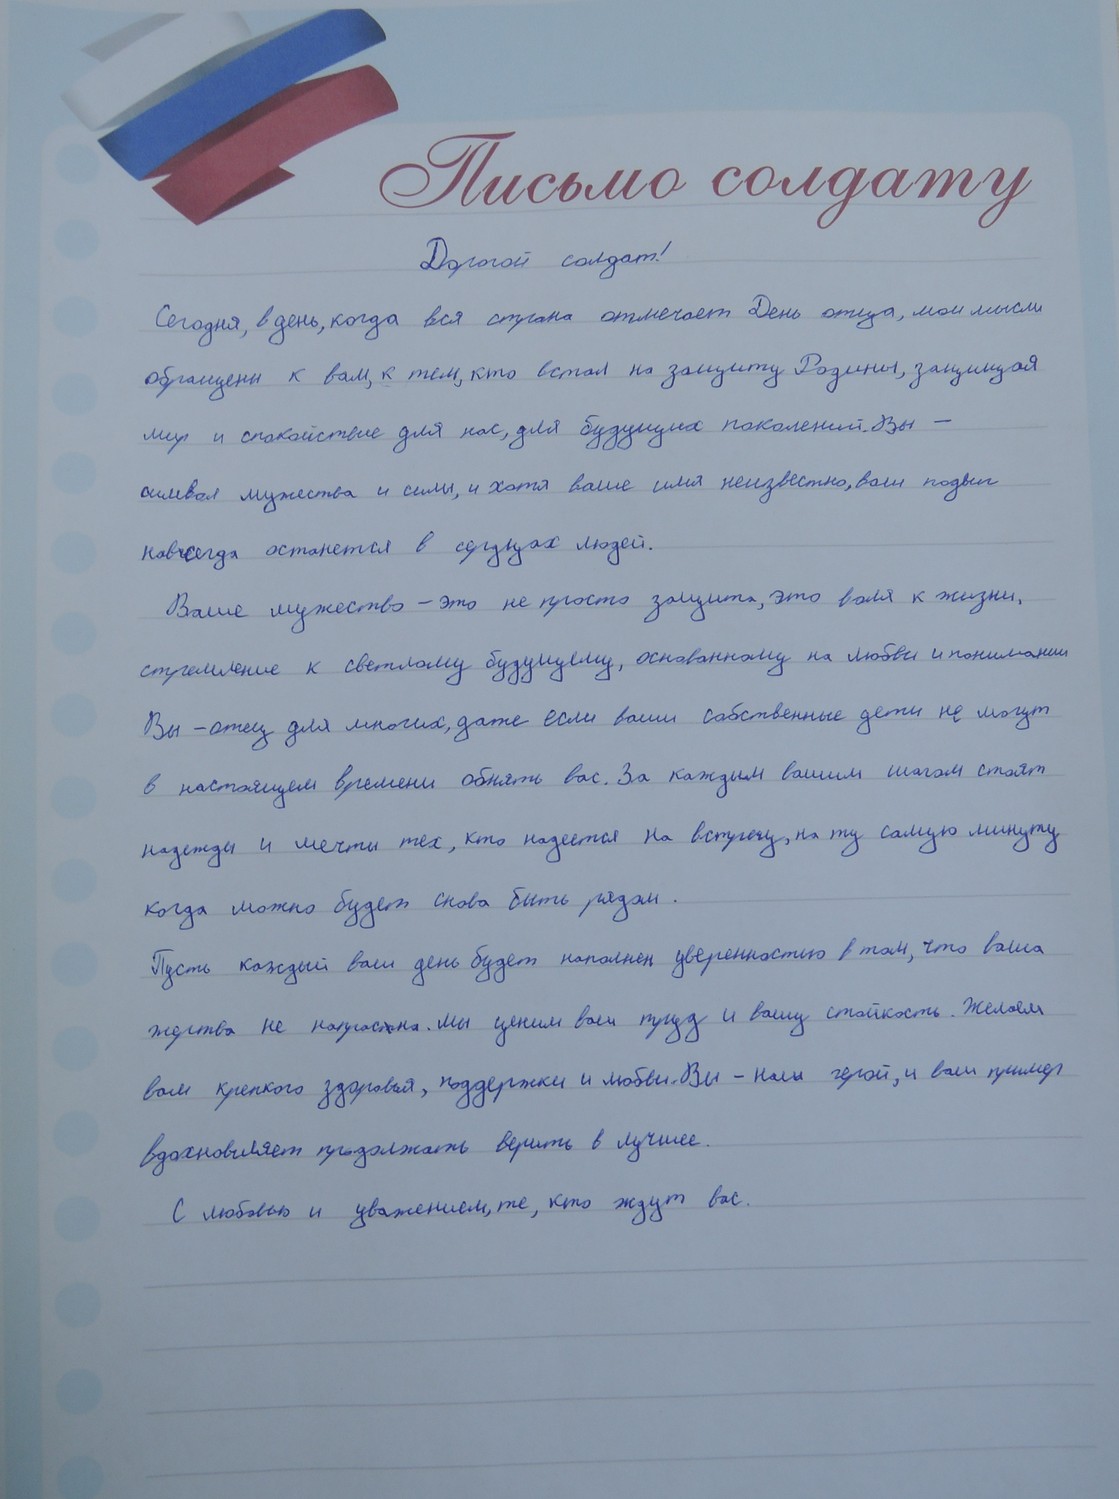 Письмо солдату
Дорогой солдат!
Сегодня, в день, когда вся страна отмечает День отца, мои мысли
обращены к вам, к тем, кто встал на защиту Родины, защищая
мир и спокойствие для нас, для будущих поколений. Вы —
символ мужества и силы, и хотя ваше имя неизвестно, ваш подвиг
навсегда останется в сердцах людей.
Ваше мужество – это не просто защита, это воля к жизни,
стремление к светлому будущему, основанному на любви и понимании
Вы – отец для многих, даже если ваши собственные дети не могут
в настоящем времени обнять вас. За каждым вашим шагом стоят
надежды и мечты тех, кто надеется на встречу, на ту самую минуту
когда можно будет снова быть рядом.
Пусть каждый ваш день будет наполнен уверенностью в том, что ваша
жертва не напрасна. Мы ценим ваш труд и вашу стойкость. Желаем
вам крепкого здоровья, поддержки и любви. Вы – наш герой, и ваш пример
вдохновляет продолжать верить в лучшее.
С любовью и уважением, те, кто ждут вас.